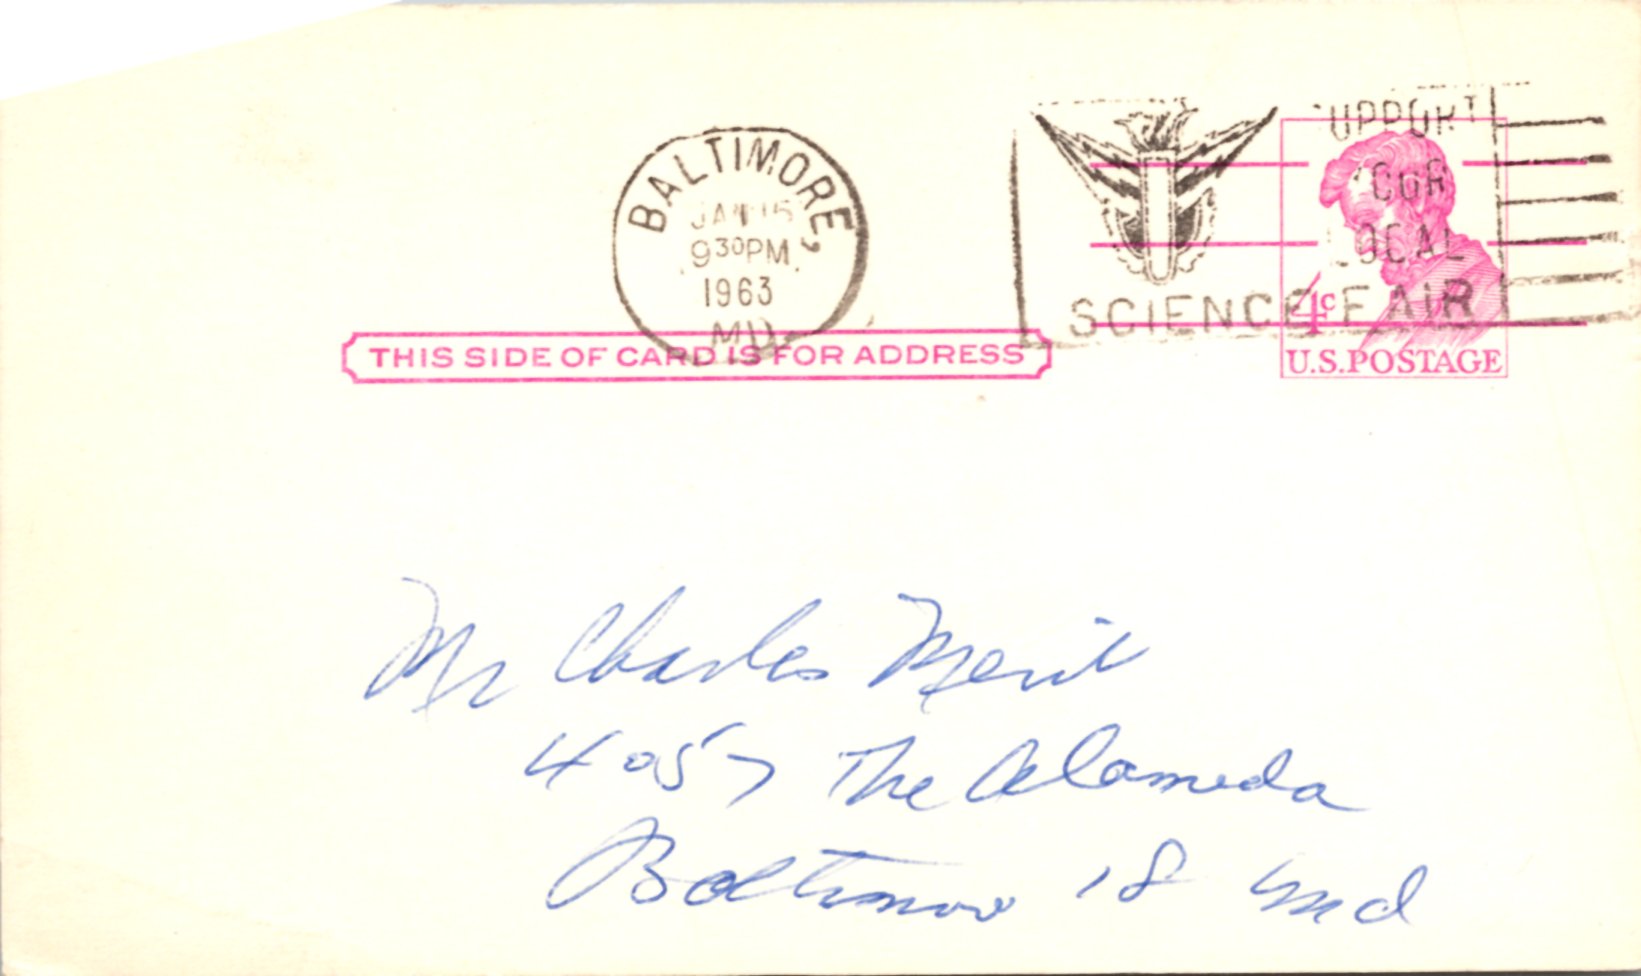 BALTIMORE,
JAN 15
9 30 PM
1963
MD.
UPPORT
OUR
LOCAL
SCIENCE FAIR
4c
U.S.POSTAGE
THIS SIDE OF CARD IS FOR ADDRESS
Mr Charles Merit
4057 The Alameda
Baltimore 18 Md